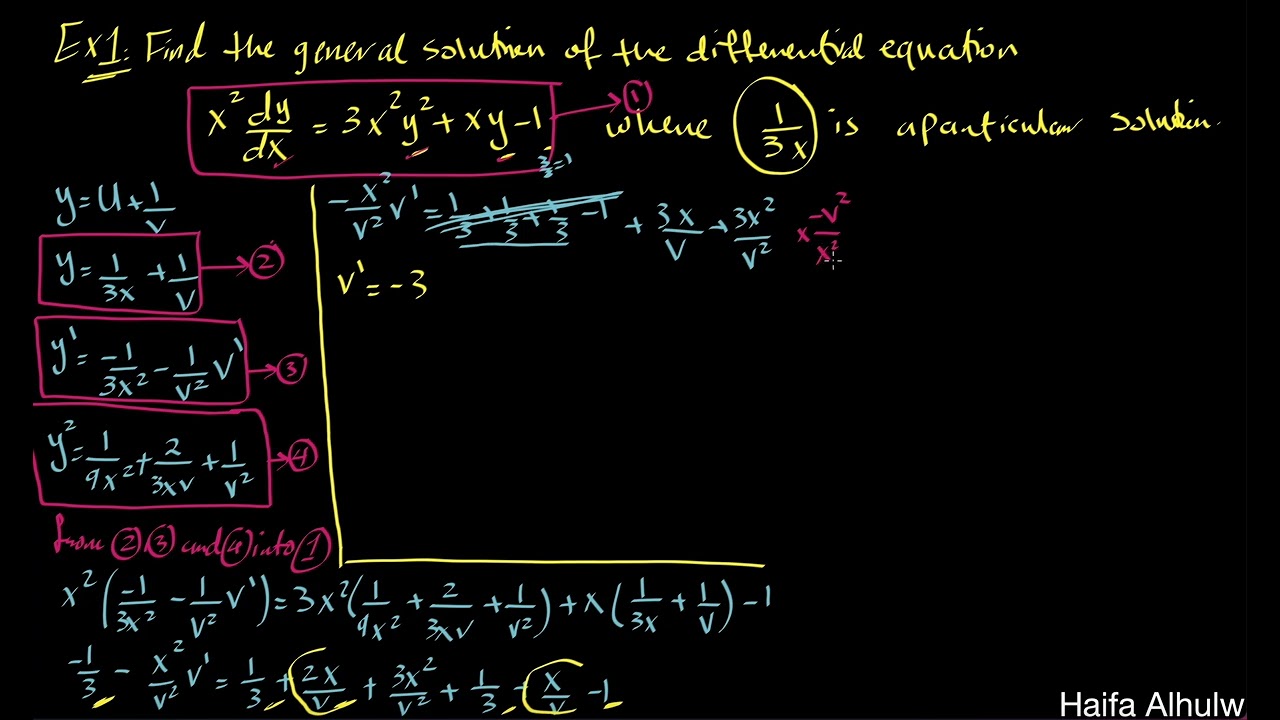 Ex1: Find the general solution of the differential equation
x² dy/dx = 3x²y² + xy - 1 → ① where 1/3x is a particular solution.
y = u + 1/v
y = 1/3x + 1/v → ②
y' = -1/3x² - 1/v² v' → ③
y² = 1/9x² + 2/3xv + 1/v² → ④
from ② ③ and ④ into ①
x² (-1/3x² - 1/v² v') = 3x² (1/9x² + 2/3xv + 1/v²) + x (1/3x + 1/v) - 1
-1/3 - x²/v² v' = 1/3 + 2x/v + 3x²/v² + 1/3 + x/v - 1
3/3 = 1
-x²/v² v' = 1/3 + 1/3 + 1/3 - 1 + 3x/v + 3x²/v² × -v²/x²
v' = -3
Haifa Alhulw